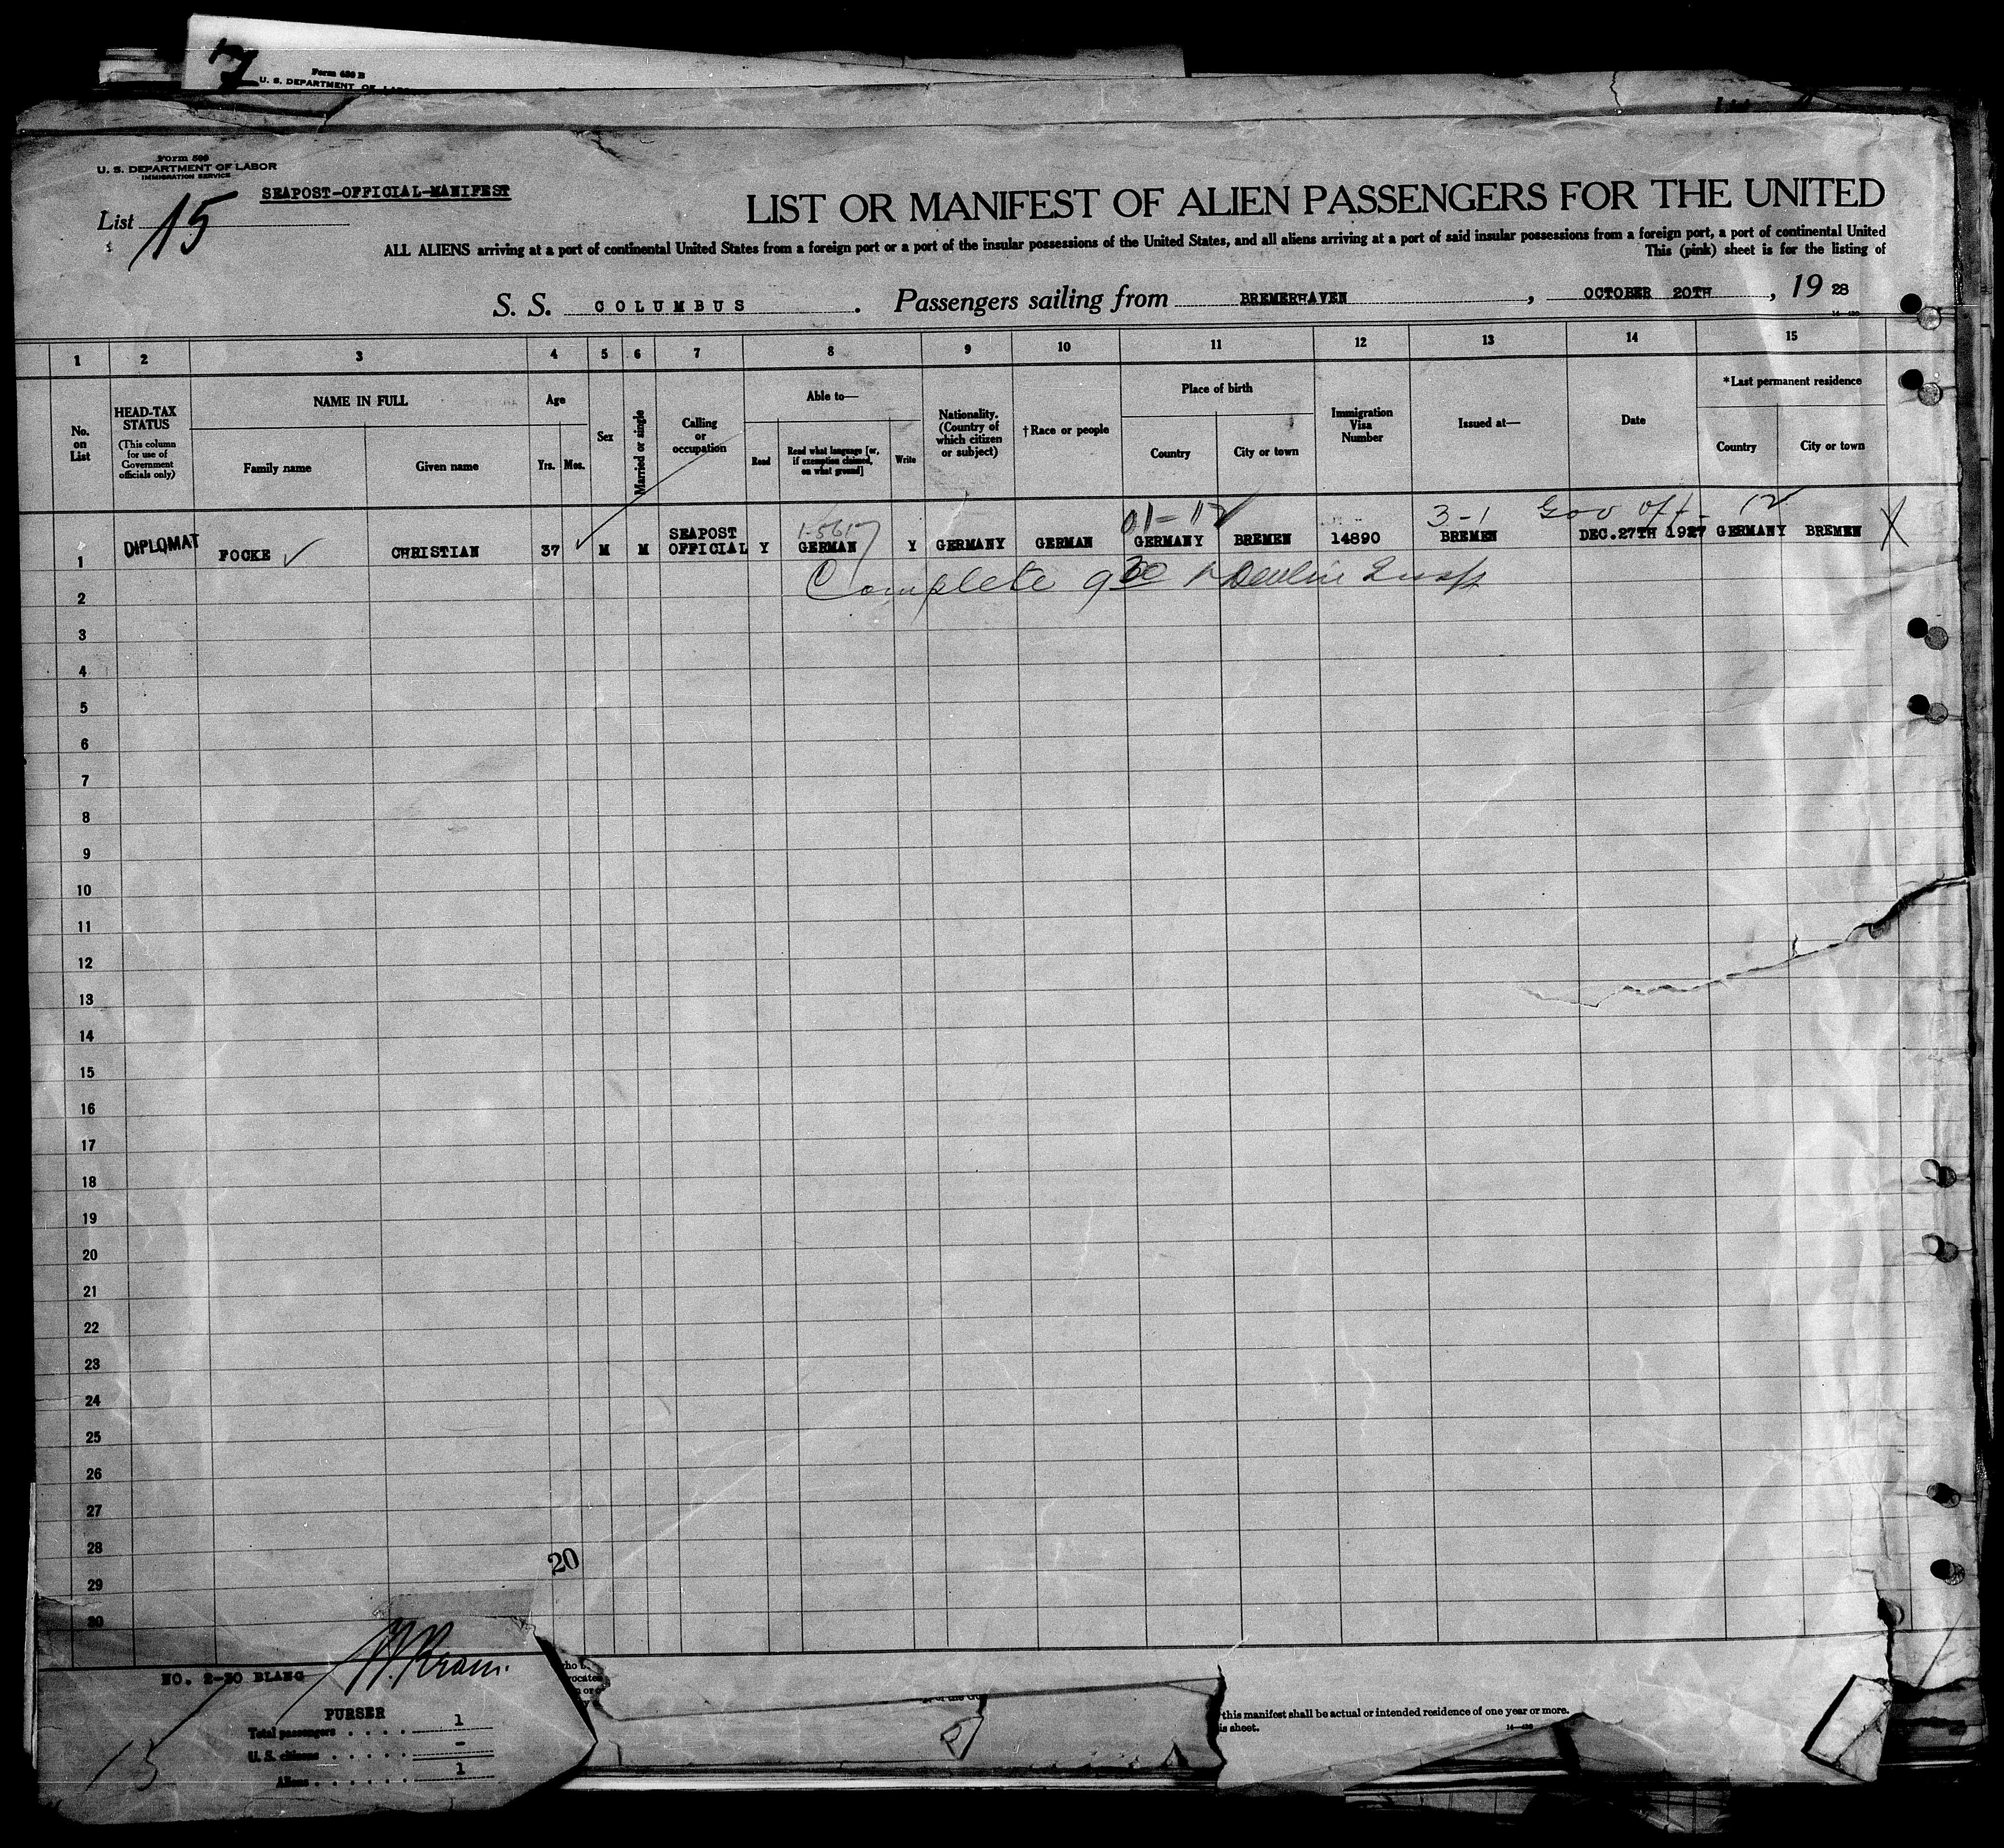 7
Form 630 B
U. S. DEPARTMENT OF
Form 500
U. S. DEPARTMENT OF LABOR
IMMIGRATION SERVICE
SEAPOST-OFFICIAL-MANIFEST
List 15
LIST OR MANIFEST OF ALIEN PASSENGERS FOR THE UNITED
ALL ALIENS arriving at a port of continental United States from a foreign port or a port of the insular possessions of the United States, and all aliens arriving at a port of said insular possessions from a foreign port, a port of continental United
This (pink) sheet is for the listing of
S. S. COLUMBUS. Passengers sailing from BREMERHAVEN, OCTOBER 20TH, 19 28
1 2 3 4 5 6 7 8 9 10 11 12 13 14 15
No. on List
HEAD-TAX STATUS
(This column for use of Government officials only)
NAME IN FULL
Family name
Given name
Age
Yrs. Mos.
Sex
Married or single
Calling or occupation
Able to—
Read
Read what language [or, if exemption claimed, on what ground]
Write
Nationality. (Country of which citizen or subject)
†Race or people
Place of birth
Country
City or town
Immigration Visa Number
Issued at—
Date
*Last permanent residence
Country
City or town
01-112 3-1 Gov Off- 12
1 DIPLOMAT FOCKE CHRISTIAN 37 M M SEAPOST OFFICIAL Y GERMAN Y GERMANY GERMAN GERMANY BREMEN 14890 BREMEN DEC.27TH 1927 GERMANY BREMEN X
Complete 930
2
3
4
5
6
7
8
9
10
11
12
13
14
15
16
17
18
19
20
21
22
23
24
25
26
27
28
29
30
20
NO. 2-30 BLANG
PURSER
Total passengers 1
U. S. citizens -
Aliens 1
15
this manifest shall be actual or intended residence of one year or more.
is sheet.